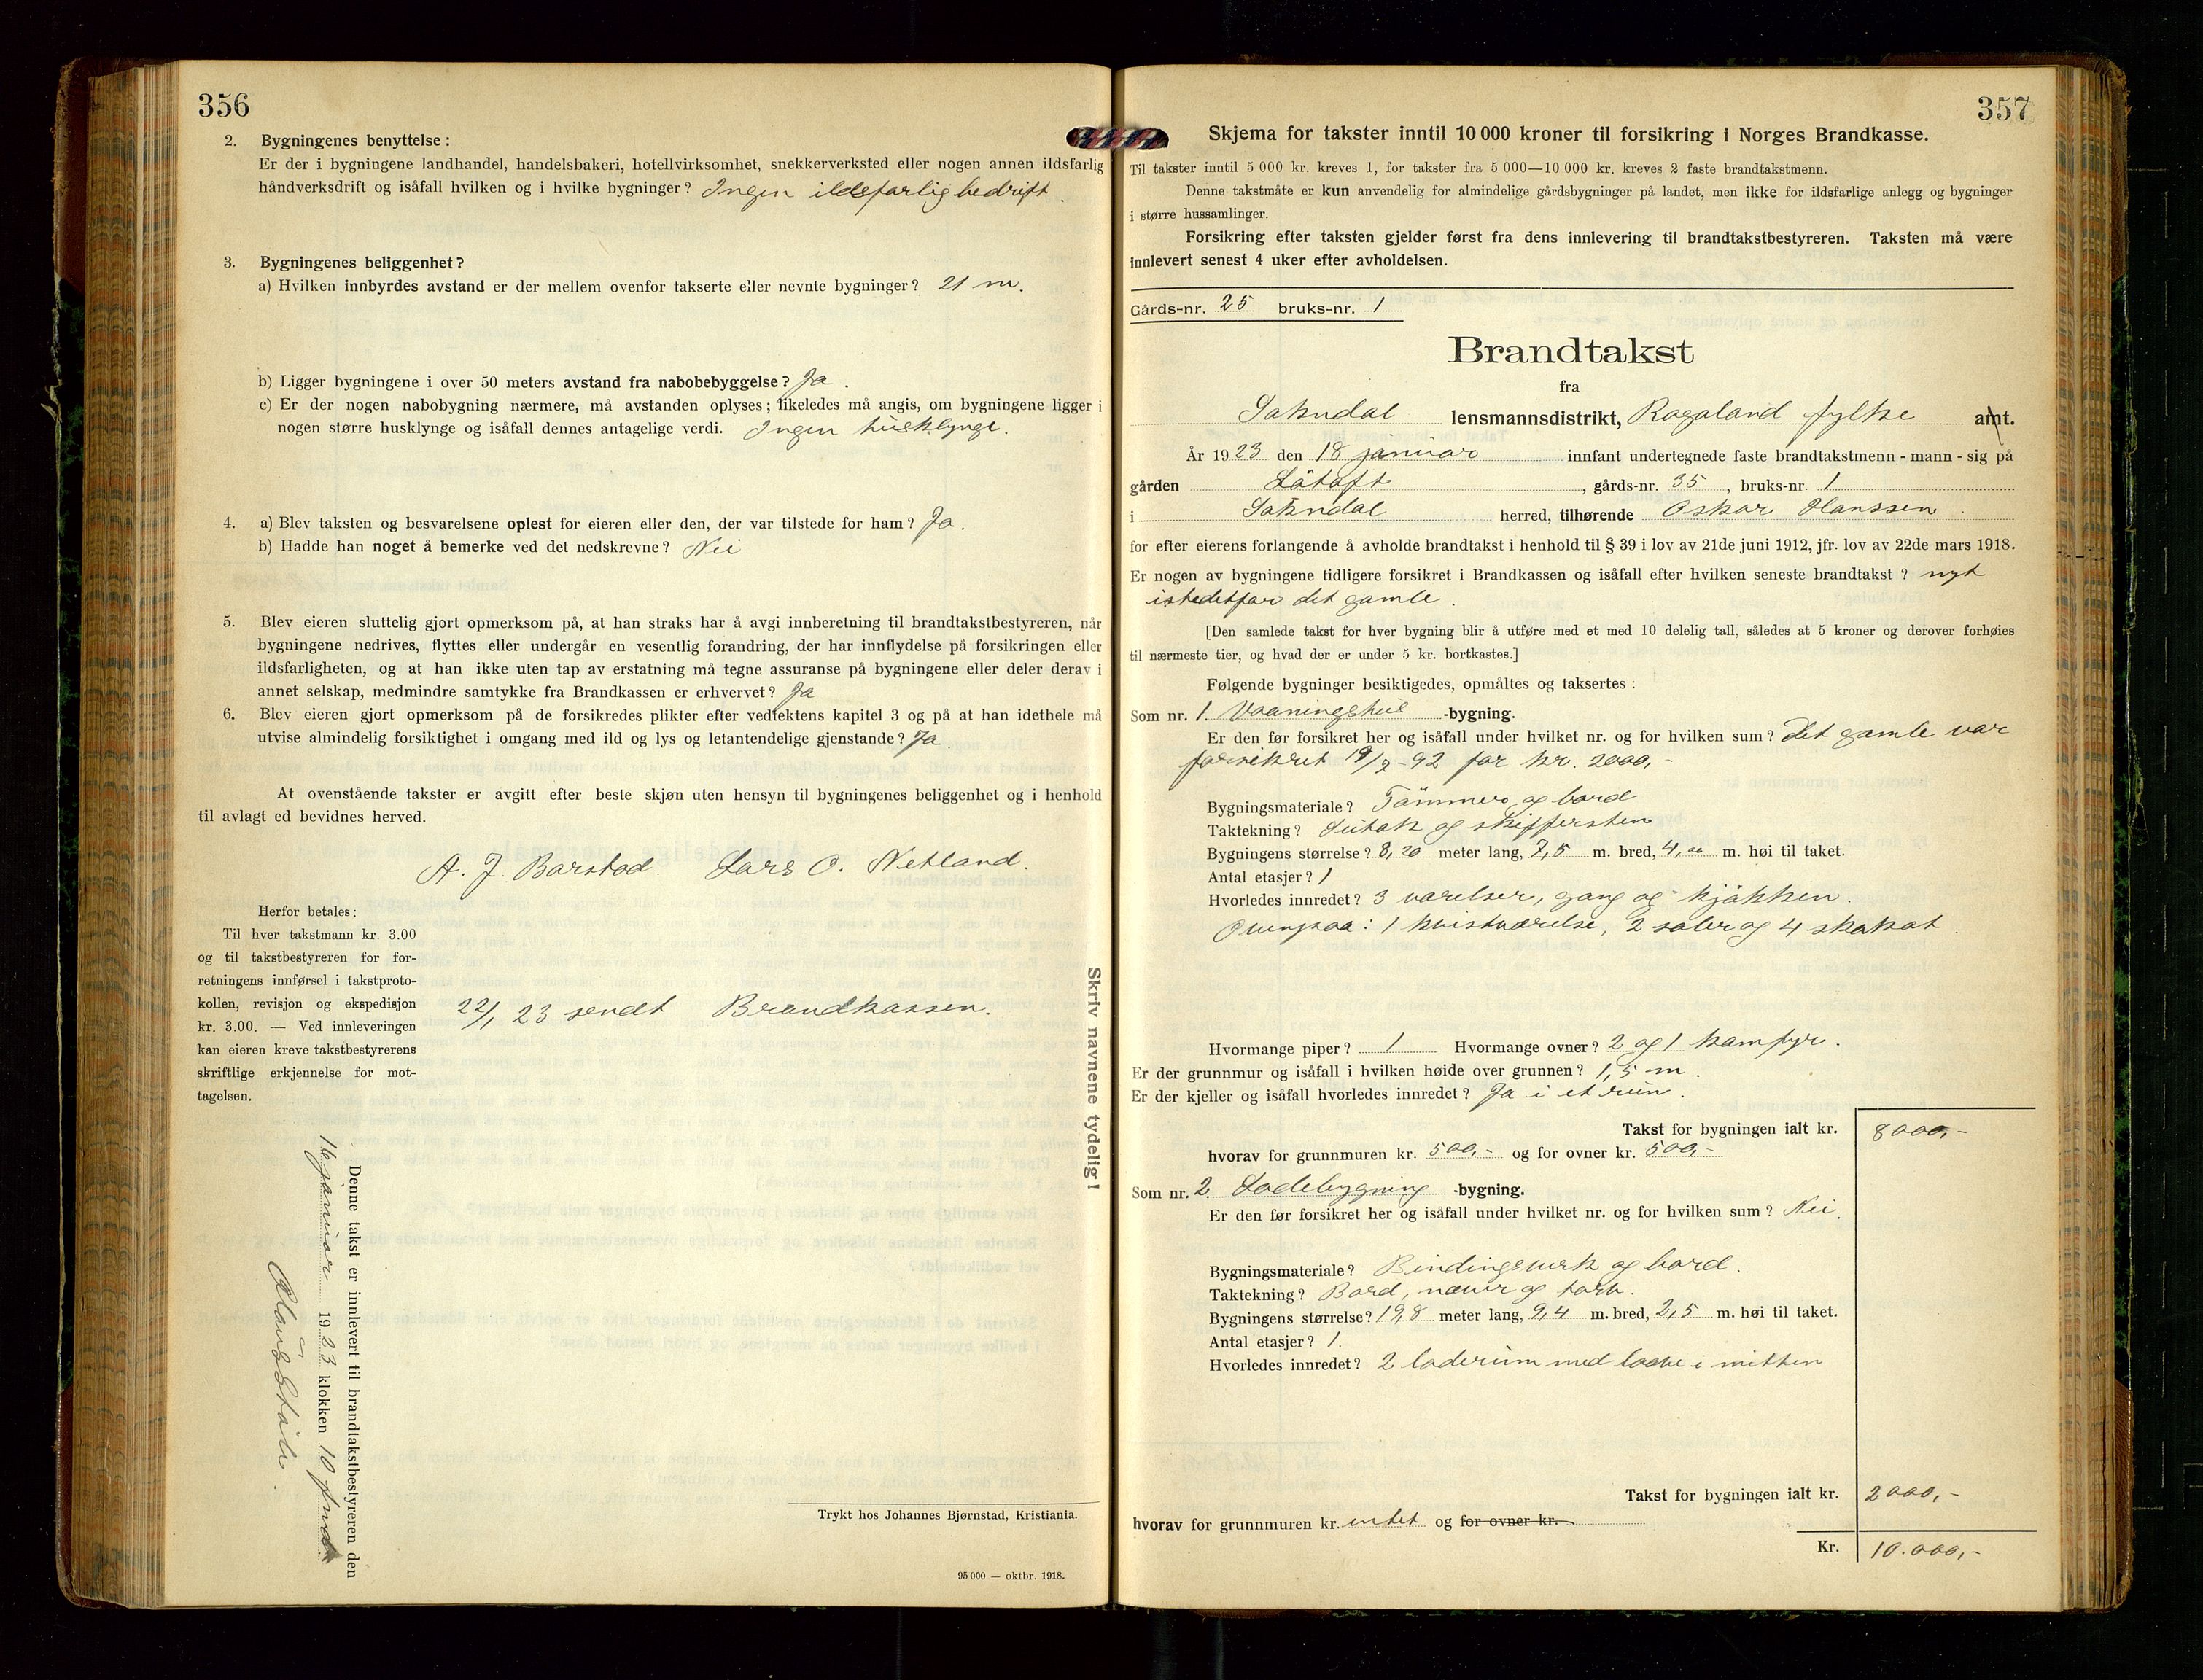 356
2. Bygningenes benyttelse :
Er der i bygningene landhandel, handelsbakeri, hotellvirksomhet, snekkerverksted eller nogen annen ildsfarlig
håndverksdrift og isåfall hvilken og i hvilke bygninger? Ingen ildsfarlig bedrift.
3. Bygningenes beliggenhet?
a) Hvilken innbyrdes avstand er der mellem ovenfor takserte eller nevnte bygninger? 21 m.
b) Ligger bygningene i over 50 meters avstand fra nabobebyggelse? Ja .
c) Er der nogen nabobygning nærmere, må avstanden oplyses ; likeledes må angis, om bygningene ligger i
nogen større husklynge og isåfall dennes antagelige verdi. Ingen husklynge.
4. a) Blev taksten og besvarelsene oplest for eieren eller den, der var tilstede for ham? Ja.
b) Hadde han noget å bemerke ved det nedskrevne? Nei
5. Blev eieren sluttelig gjort opmerksom på, at han straks har å avgi innberetning til brandtakstbestyreren, når
bygningene nedrives, flyttes eller undergår en vesentlig forandring, der har innflydelse på forsikringen eller
ildsfarligheten, og at han ikke uten tap av erstatning må tegne assuranse på bygningene eller deler derav i
annet selskap, medmindre samtykke fra Brandkassen er erhvervet? Ja
6. Blev eieren gjort opmerksom på de forsikredes plikter efter vedtektens kapitel 3 og på at han idethele må
utvise almindelig forsiktighet i omgang med ild og lys og letantendelige gjenstande? Ja
At ovenstående takster er avgitt efter beste skjøn uten hensyn til bygningenes beliggenhet og i henhold
til avlagt ed bevidnes herved.
A. J. Barstad. Lars O. Netland.
Herfor betales:
Til hver takstmann kr. 3.00
og til takstbestyreren for for-
retningens innførsel i takstproto-
kollen, revisjon og ekspedisjon
kr. 3.00. — Ved innleveringen
kan eieren kreve takstbestyrerens
skriftlige erkjennelse for mot-
tagelsen.
22/1 23 sendt Brandkassen.
Skriv navnene tydelig!
Denne takst er innlevert til brandtakstbestyreren den
16 januar 1923 klokken 10
Trykt hos Johannes Bjørnstad, Kristiania.
95 000 — oktbr. 1918.
357
Skjema for takster inntil 10 000 kroner til forsikring i Norges Brandkasse.
Til takster inntil 5 000 kr. kreves 1, for takster fra 5 000—10 000 kr. kreves 2 faste brandtakstmenn.
Denne takstmåte er kun anvendelig for almindelige gårdsbygninger på landet, men ikke for ildsfarlige anlegg og bygninger
i større hussamlinger.
Forsikring efter taksten gjelder først fra dens innlevering til brandtakstbestyreren. Taksten må være
innlevert senest 4 uker efter avholdelsen.
Gårds-nr. 25 bruks-nr. 1
Brandtakst
fra
Sokndal lensmannsdistrikt, Rogaland fylke amt.
År 1923 den 18 januar innfant undertegnede faste brandtakstmenn - mann - sig på
gården Låtoft, gårds-nr. 35, bruks-nr. 1
i Sokndal herred, tilhørende Oskar Hanssen.
for efter eierens forlangende å avholde brandtakst i henhold til § 39 i lov av 21de juni 1912, jfr. lov av 22de mars 1918.
Er nogen av bygningene tidligere forsikret i Brandkassen og isåfall efter hvilken seneste brandtakst ? nyt
istedetfor det gamle .
[Den samlede takst for hver bygning blir å utføre med et med 10 delelig tall, således at 5 kroner og derover forhøies
til nærmeste tier, og hvad der er under 5 kr. bortkastes.]
Følgende bygninger besiktigedes, opmåltes og taksertes :
Som nr. 1. Vaaningshus -bygning.
Er den før forsikret her og isåfall under hvilket nr. og for hvilken sum? det gamle var
forsikret 19/7-92 for kr. 2000,-
Bygningsmateriale? Tømmer og bord
Taktekning? Sutak og skiffersten
Bygningens størrelse? 8,20 meter lang, 7,5 m. bred, 4,00 m. høi til taket.
Antal etasjer? 1
Hvorledes innredet? 3 værelser, gang og kjøkken.
Ovenpaa: 1 kvistværelse, 2 saler og 4 skakot.
Hvormange piper? 1 Hvormange ovner? 2 og 1 komfyr.
Er der grunnmur og isåfall i hvilken høide over grunnen? 1,5 m.
Er der kjeller og isåfall hvorledes innredet? Ja i et rum.
Takst for bygningen ialt kr. 8000,-
hvorav for grunnmuren kr. 500,- og for ovner kr. 500,-
Som nr. 2. Lodebygning -bygning.
Er den før forsikret her og isåfall under hvilket nr. og for hvilken sum? Nei.
Bygningsmateriale? Bindingsverk og bord.
Taktekning? Bord, næver og torv.
Bygningens størrelse? 19,8 meter lang, 9,4 m. bred, 2,5 m. høi til taket.
Antal etasjer? 1.
Hvorledes innredet? 2 laderum med laave i mitten
Takst for bygningen ialt kr. 2000,-
hvorav for grunnmuren kr. intet og for ovner kr.
Kr. 10.000,-